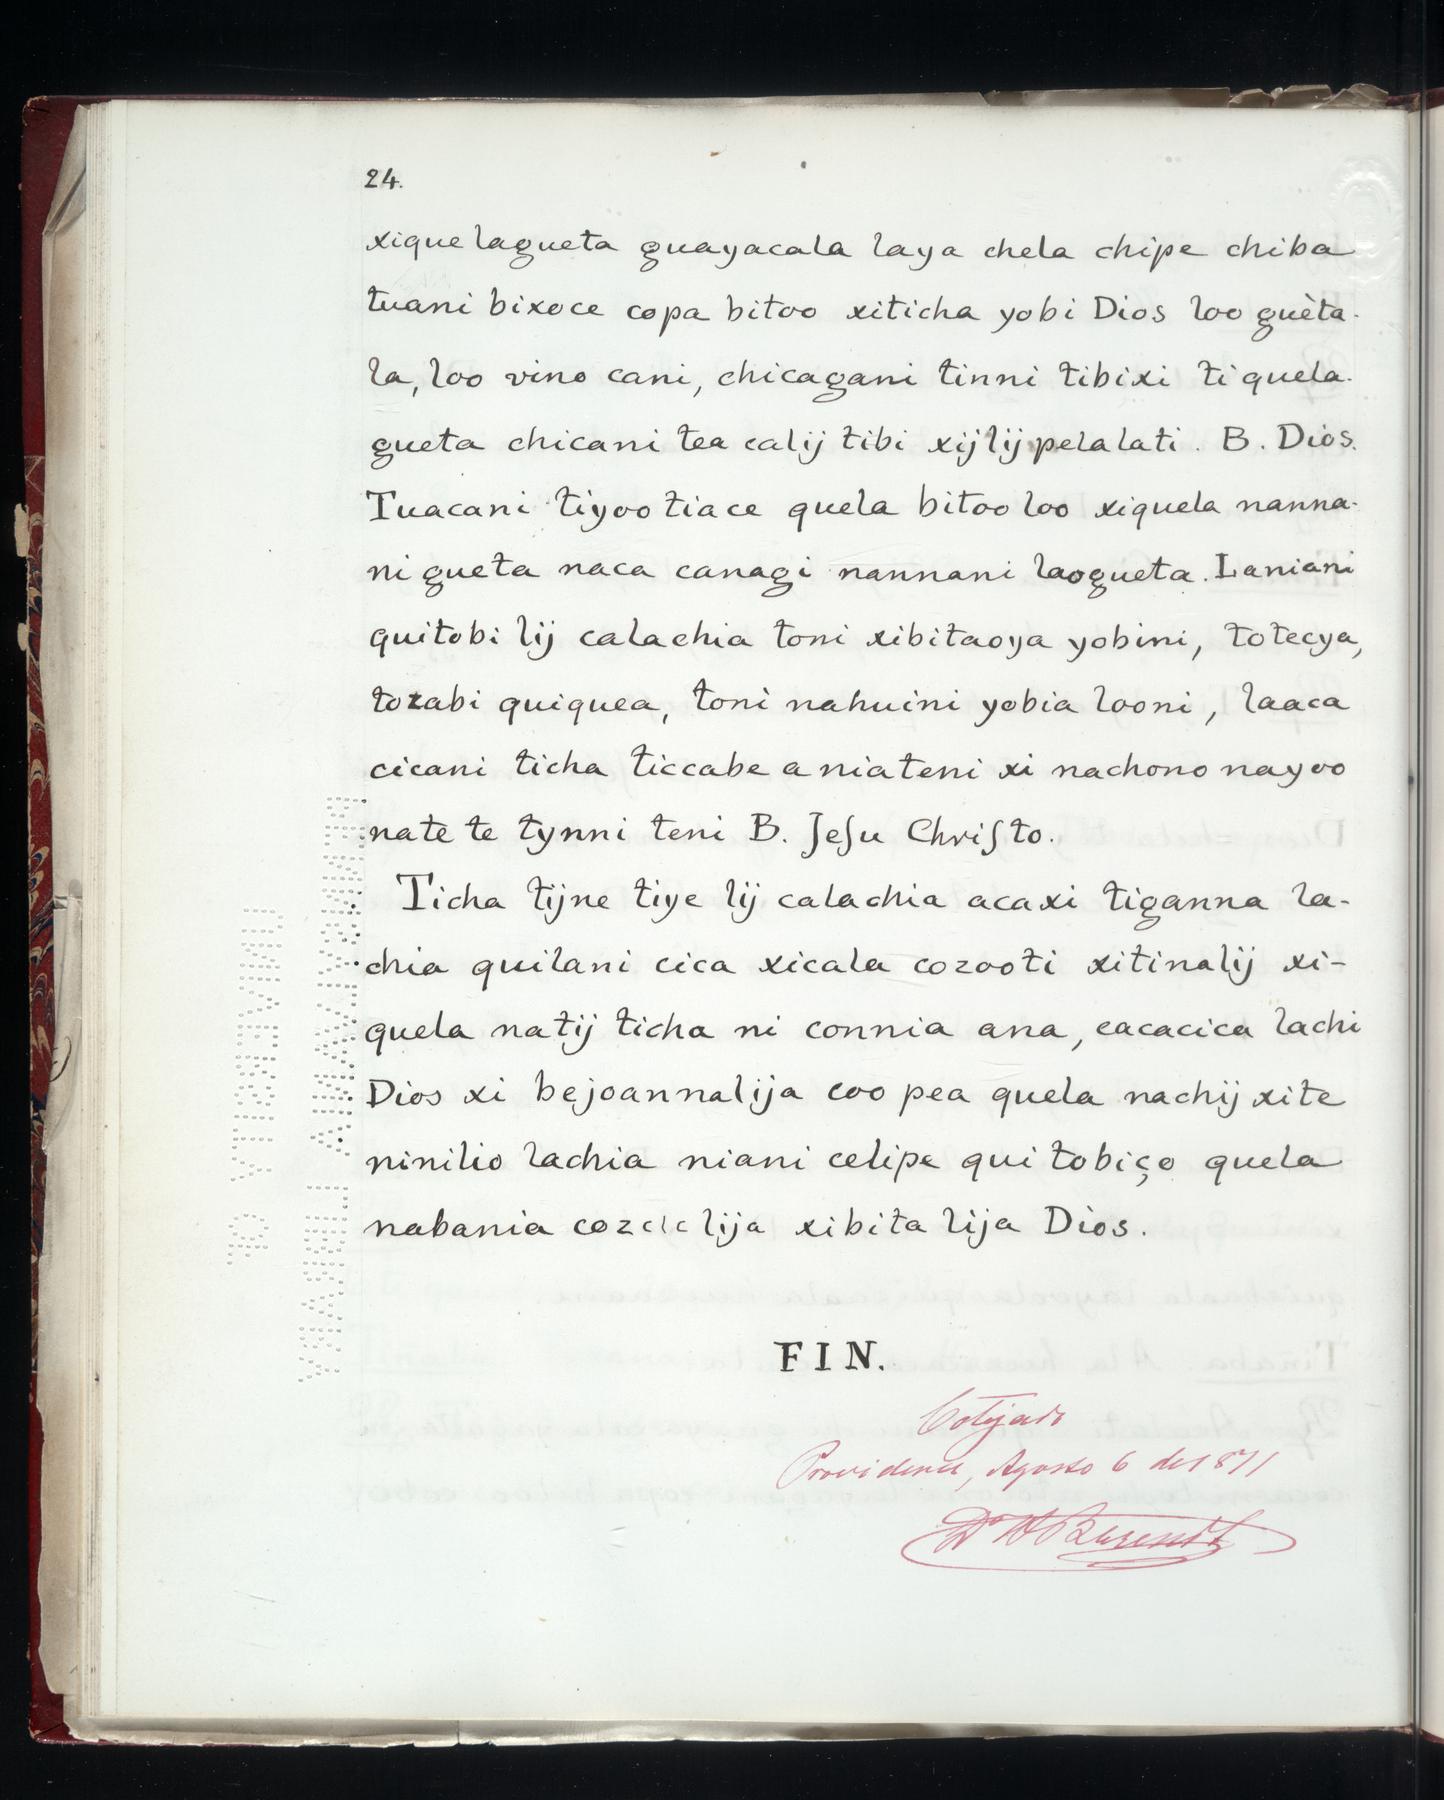 24.
xiquelagueta guayacala laya chela chipe chiba
tuani bixoce copa bitoo xiticha yobi Dios loo guèta-
la, loo vino cani, chicagani tinni tibixi ti quela-
gueta chicani tea calij tibi xijlij pelalati. B. Dios.
Tuacani tiyoo tiace quela bitoo loo xiquela nanna-
ni gueta naca canagi nannani laogueta. Laniani
quitobi lij calachia toni xibitaoya yobini, totecya,
tozabi quiquea, toni nahuini yobia looni, laaca
cicani ticha ticcabe a niateni xi nachono nayoo
nate te tynni teni B. Jeſu Chriſto.
Ticha tijne tiye lij calachia acaxi tiganna la-
chia quilani cica xicala cozooti xitinalij xi-
quela natij ticha ni connia ana, cacacica lachi
Dios xi bejoannalija coo pea quela nachij xite
ninilio lachia niani celipe qui tobiço quela
nabania lija xibita lija Dios.
FIN.
Cotejado
Providence, Agosto 6 de 1871
Dr. H Berendt